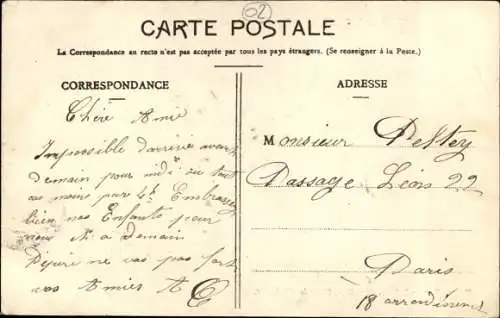 02
CARTE POSTALE
La Correspondance au recto n'est pas acceptée par tous les pays étrangers. (Se renseigner à la Poste.)
CORRESPONDANCE
Chère Amie
Impossible d'arriver avant
demain pour midi ou tout
au moins par Embrassez
bien nos Enfants pour
nous A demain
ne vas pas fort
vos Amies
ADRESSE
Monsieur Peltey
Passage Léon 22
Paris
18 arrondissement